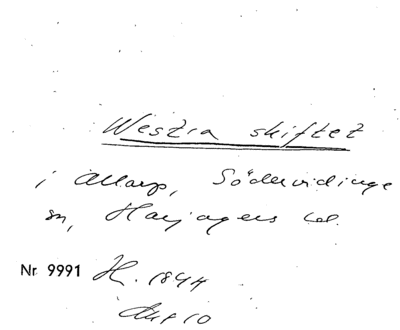 Westra skiftet
i Allarp, Södervidinge
sn, Harjagers hd.
Nr 9991 H. 1844
Akt 10